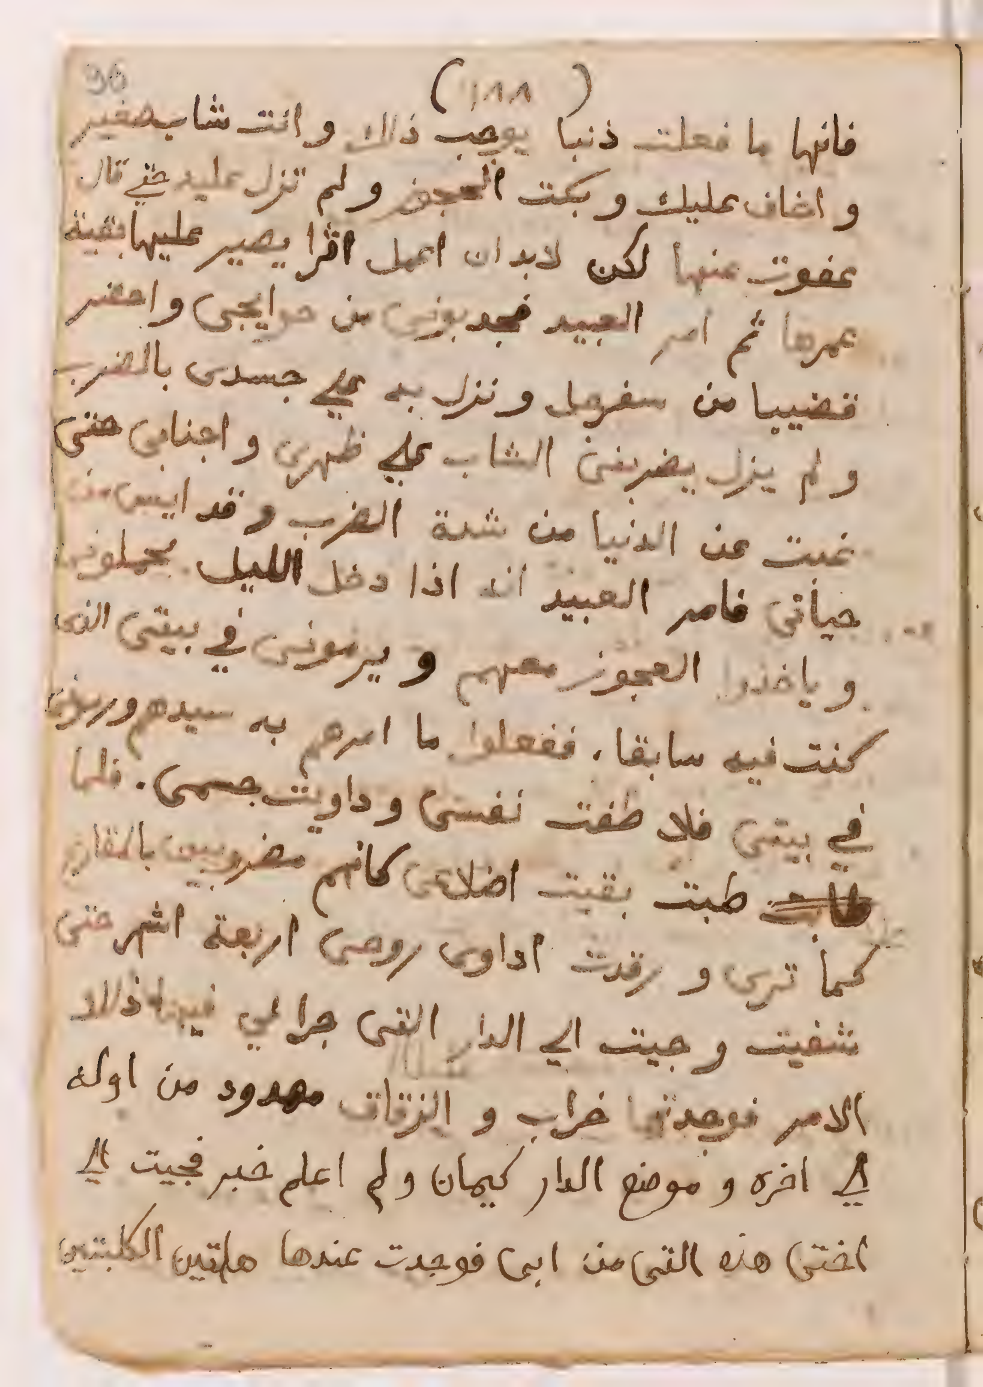 96
(١٨٨)
فانها ما فعلت ذنبا يوجب ذالك وانت شاب صغير
و اخاف عليك و بكت العجوز و لم تزل عليه حتي قال
عفوت عنها لكن لابد ان اعمل اثرا يصير عليها بقية
عمرها ثم امر العبيد فجدبوني من حوايجي واحضر
قضيبا من سفرجل و نزل به علي جسدى بالضرب
و لم يزل يضربني الشاب علي ظهرى و اجنابى حتى
غبت عن الدنيا من شدة الضرب وقد ايس من
حياتى فامر العبيد انه اذا دخل الليل يحملونى
و ياخذوا العجوز معهم و يرمونى في بيتى الذى
كنت فيه سابقا. ففعلوا ما امرهم به سيدهم ورمونى
في بيتى فلا طفت نفسى و داويت جسمى. فلما
طبت بقيت اضلاعى كانهم مضروبين بالمقارع
كما ترى و رقدت اداوى روحى اربعة اشهر حتى
شفيت و جيت الي الدار التى جرا لي فيها ذالك
الامر فوجدتها خراب و الزقاق مهدود من اوله
الي اخره و موضع الدار كيمان و لم اعلم خبر فجيت الي
اختى هذه التى من ابى فوجدت عندها هاتين الكلبتين